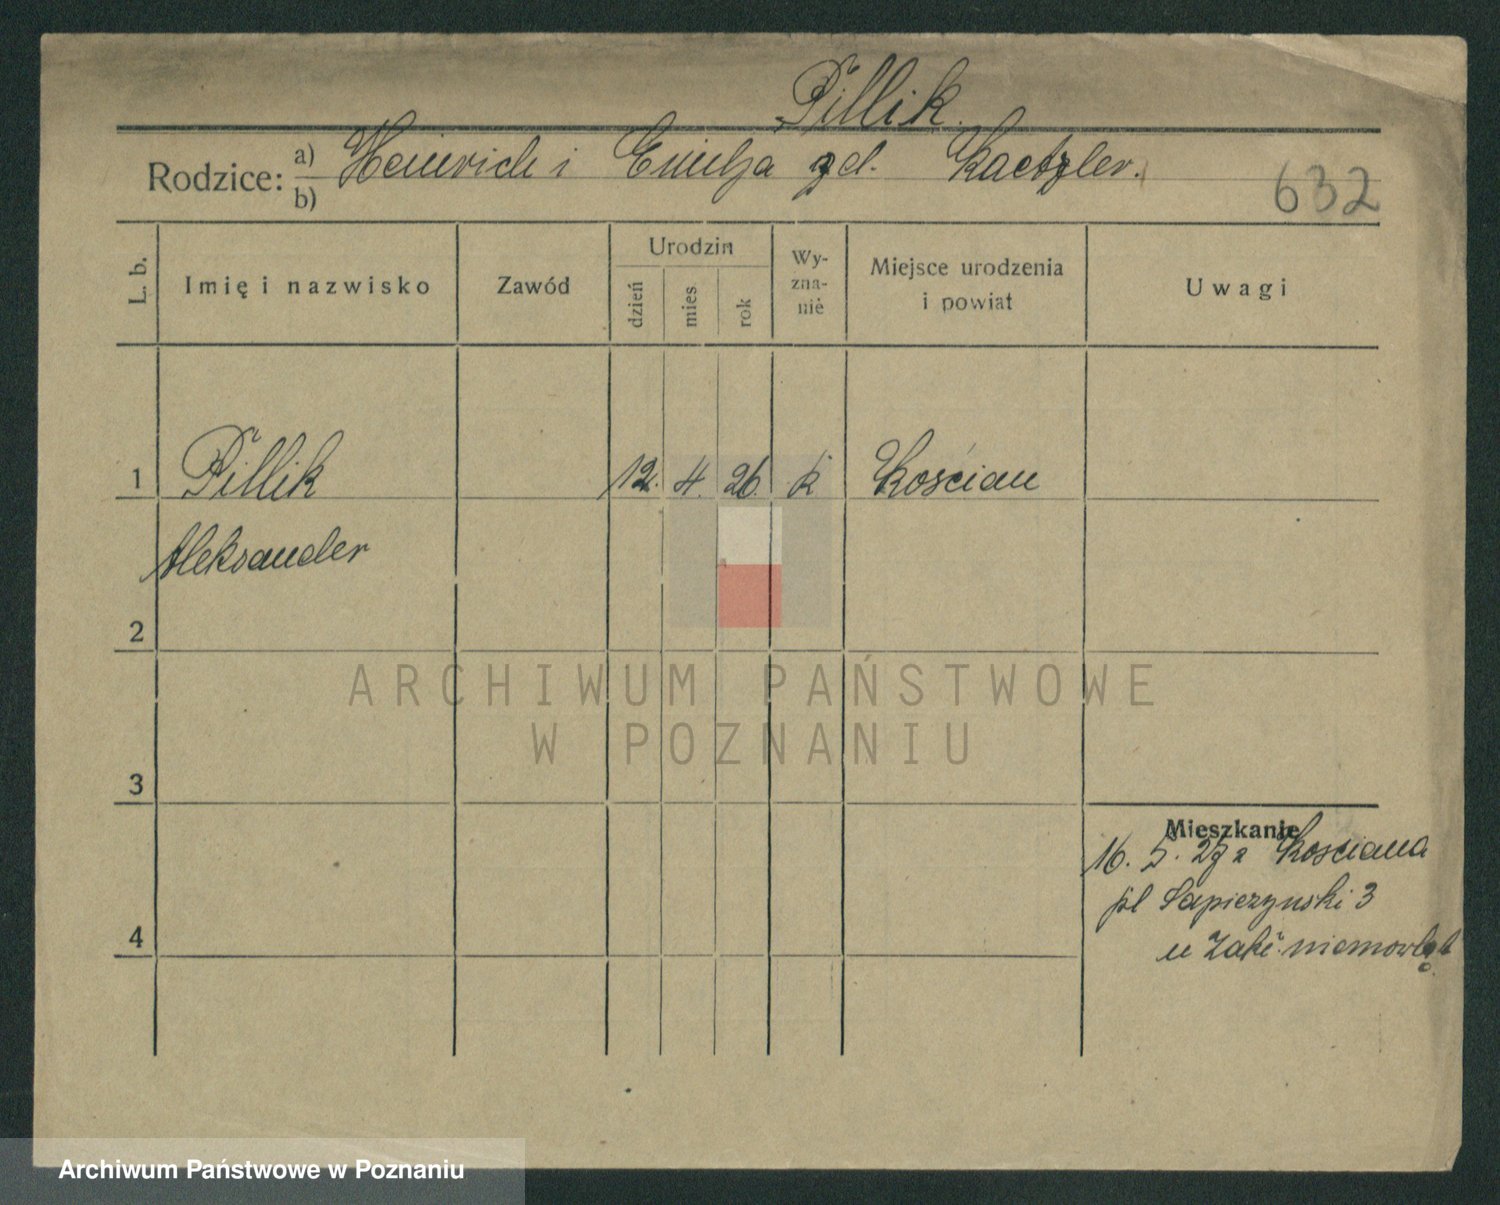 Pillik
Rodzice: a) Heinrich i Emilja zd. Kaetzler.
b)
632
L. b.
Imię i nazwisko
Zawód
Urodzin
dzień
mies.
rok
Wy-
zna-
nie
Miejsce urodzenia
i powiat
Uwagi
1 Pillik 12. 4. 26. k Kościan
Aleksander
2
ARCHIWUM PAŃSTWOWE
W POZNANIU
3
Mieszkanie
16. 5. 27 z Kościana
pl Sapieżynski 3
u Zakł. niemowląt
4
Archiwum Państwowe w Poznaniu